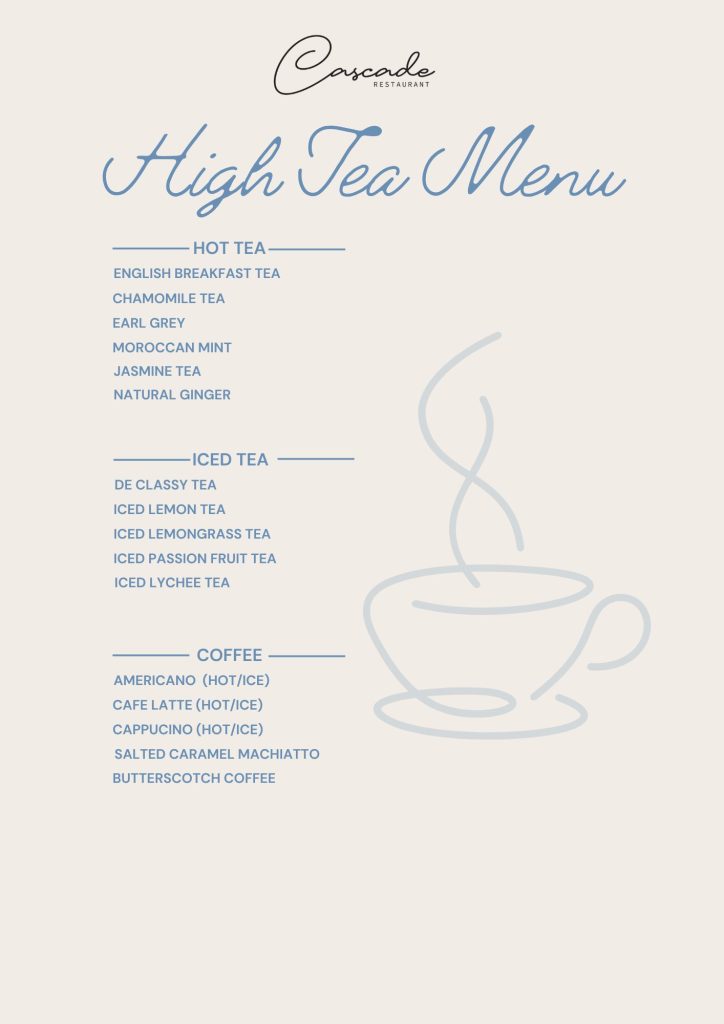 Cascade
RESTAURANT
High Tea Menu
HOT TEA
ENGLISH BREAKFAST TEA
CHAMOMILE TEA
EARL GREY
MOROCCAN MINT
JASMINE TEA
NATURAL GINGER
ICED TEA
DE CLASSY TEA
ICED LEMON TEA
ICED LEMONGRASS TEA
ICED PASSION FRUIT TEA
ICED LYCHEE TEA
COFFEE
AMERICANO (HOT/ICE)
CAFE LATTE (HOT/ICE)
CAPPUCINO (HOT/ICE)
SALTED CARAMEL MACHIATTO
BUTTERSCOTCH COFFEE